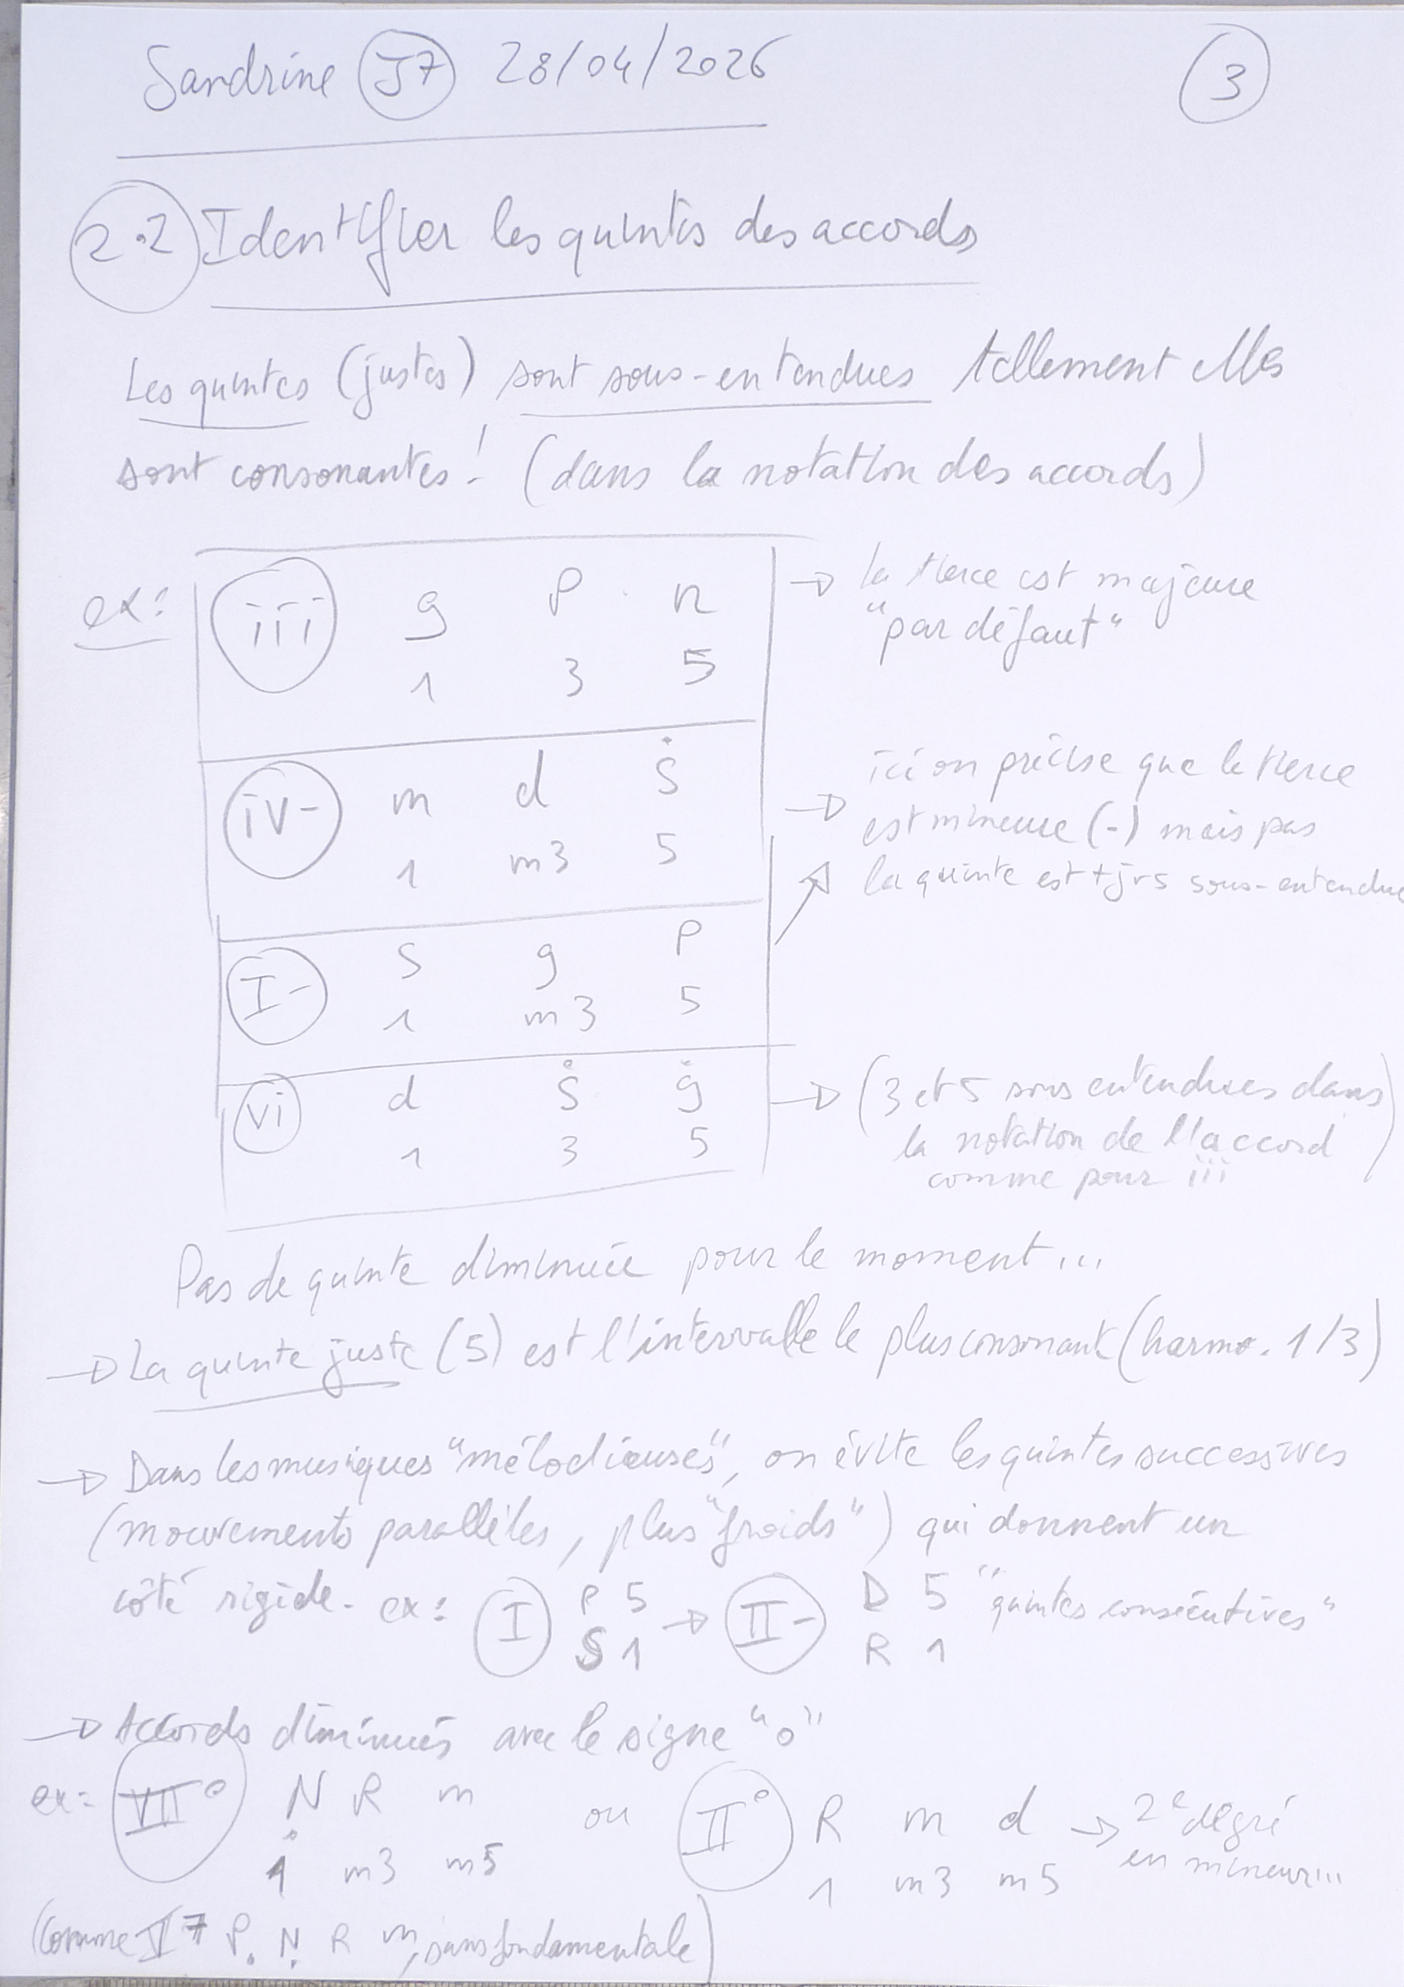 Sandrine J7 28/04/2026 3
2.2 Identifier les quintes des accords
Les quintes (justes) sont sous-entendues tellement elles
sont consonantes! (dans la notation des accords)
ex: iii g P n → la tierce est majeure
1 3 5 "par défaut"
iv- m d Ṡ → ici on précise que la tierce
1 m3 5 est mineure (-) mais pas
la quinte est tjrs sous-entendue
I- S g P
1 m3 5
vi d Ṡ ġ → (3 et 5 sous entendues dans
1 3 5 la notation de l'accord
comme pour iii)
Pas de quinte diminuée pour le moment...
→ La quinte juste (5) est l'intervalle le plus consonant (harmo. 1/3)
→ Dans les musiques "mélodieuses", on évite les quintes successives
(mouvements parallèles, plus "froids") qui donnent un
côté rigide. ex: I P 5 → II- D 5 "quintes consécutives"
S 1 R 1
→ Accords diminués avec le signe "o"
ex: VII° N R m ou II° R m d → 2e degré
1 m3 m5 1 m3 m5 en mineur...
(comme V7 P. Ṇ R m, sans fondamentale)